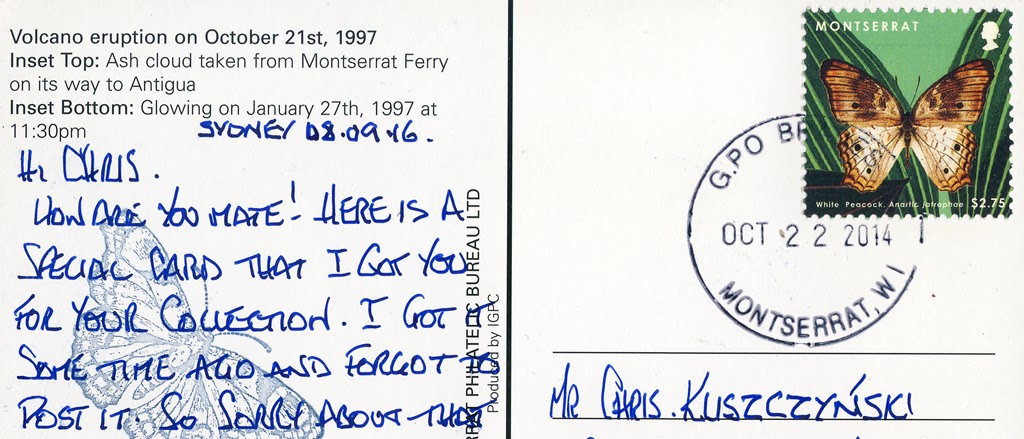 Volcano eruption on October 21st, 1997
Inset Top: Ash cloud taken from Montserrat Ferry
on its way to Antigua
Inset Bottom: Glowing on January 27th, 1997 at
11:30pm
SYDNEY 08.09.16.
Hi CHRIS.
HOW ARE YOU MATE! HERE IS A
SPECIAL CARD THAT I GOT YOU
FOR YOUR COLLECTION. I GOT IT
SOME TIME AGO AND FORGOT TO
POST IT. SO SORRY ABOUT THAT
PHILATELIC BUREAU LTD
Produced by IGPC
MONTSERRAT
White Peacock, Anartia jatrophae $2.75
G.P.O
OCT 22 2014
MONTSERRAT, W I
MR CHRIS KUSZCZYŃSKI